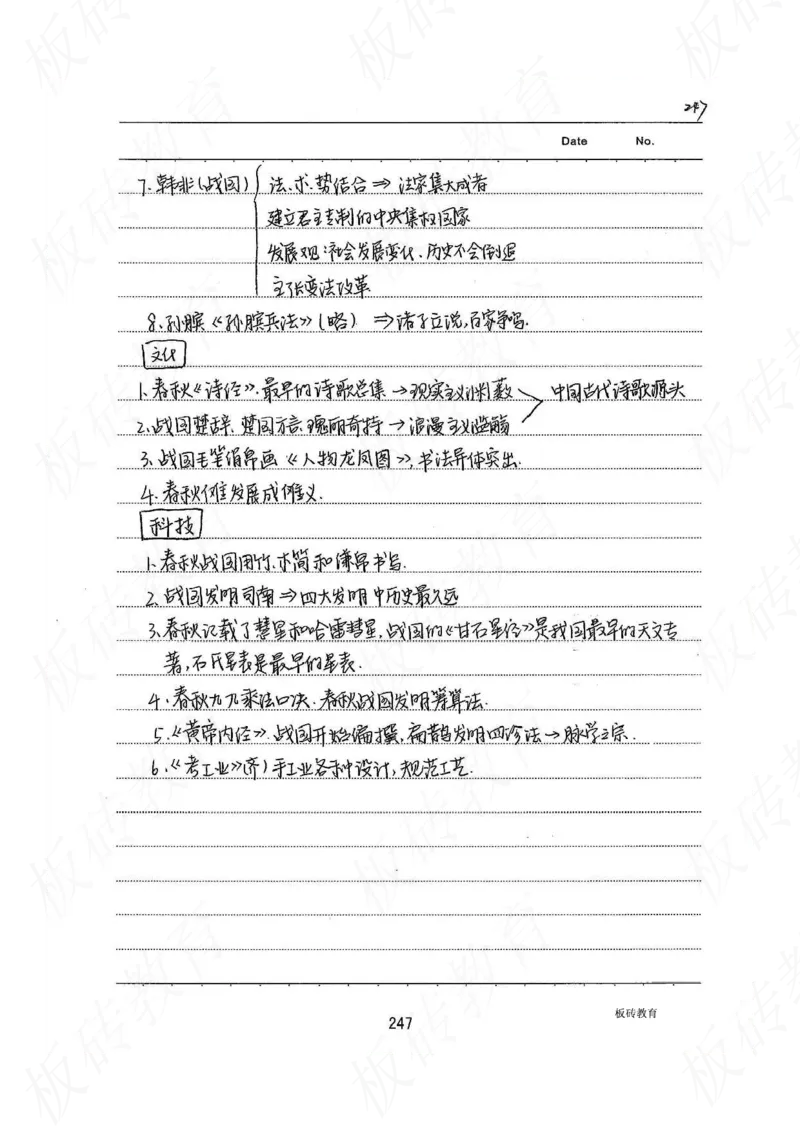 247
Date No.
7.韩非(战国) 法、术、势结合⇒法家集大成者
建立君主专制的中央集权国家
发展观:社会发展变化、历史不会倒退
主张变法改革
8.孙膑《孙膑兵法》(略) ⇒诸子立说,百家争鸣.
文化
1.春秋《诗经》.最早的诗歌总集→现实主义渊薮 中国古代诗歌源头
2.战国楚辞.楚国方言.瑰丽奇特→浪漫主义滥觞
3.战国毛笔绢帛画《人物龙凤图》,书法异体突出.
4.春秋傩发展成傩义.
科技
1.春秋战国用竹、木简和缣帛书写.
2.战国发明司南⇒四大发明中历史最久远
3.春秋记载了彗星和哈雷彗星,战国的《甘石星经》是我国最早的天文专
著,石氏星表是最早的星表.
4.春秋九九乘法口决.春秋战国发明筹算法.
5.《黄帝内经》.战国开始编撰,扁鹊发明四诊法→脉学之宗.
6.《考工业》(齐)手工业各种设计,规范工艺.
247
板砖教育